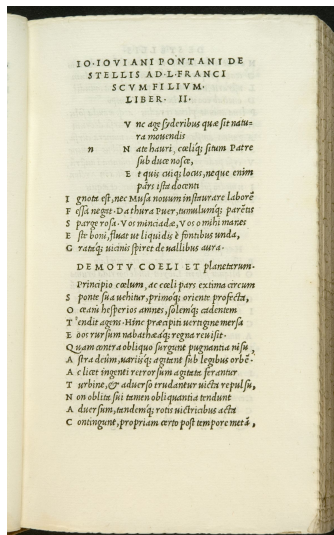 IO. IOVIANI PONTANI DE
STELLIS AD. L. FRANCI
SCVM FILIVM.
LIBER. II.
V nc age syderibus quæ sit natu-
ra mouendis
n N ate hauri, cœliq; situm Patre
sub duce nosce,
E t quis cuiq; locus, neque enim
pars ista docenti
I gnota est, nec Musa nouum instaurare laborē
F essa negat. Da thura Puer, tumulumq; parētis
S parge rosa. Vos minciadæ, vos o mihi manes
E ste boni, fluat ut liquidis è fontibus unda,
G rataq; uicinis spiret de uallibus aura.
DE MOTV COELI ET planetarum.
Principio cœlum, ac cœli pars extima circum
S ponte sua uehitur, primoq; oriente profecta,
O ceani hesperios amnes, solemq; cadentem
T endit agens. Hinc præcipiti uertigine mersa
E oos rursum nabathæaq; regna reuisit.
Q uam contra obliquo surgunt pugnantia nisu
A stra deûm, uariisq; agitant sub legibus orbē.
A c licet ingenti retrorsum agitata ferantur
T urbine, & aduerso trudantur uicta repulsu,
N on oblita sui tamen obliquantia tendunt
A duersum, tandemq; rotis uictricibus acta
C ontingunt, propriam certo post tempore metā,